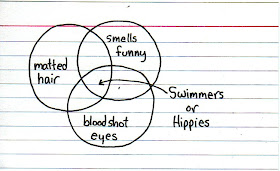 smells
funny
matted
hair
bloodshot
eyes
Swimmers
or
Hippies